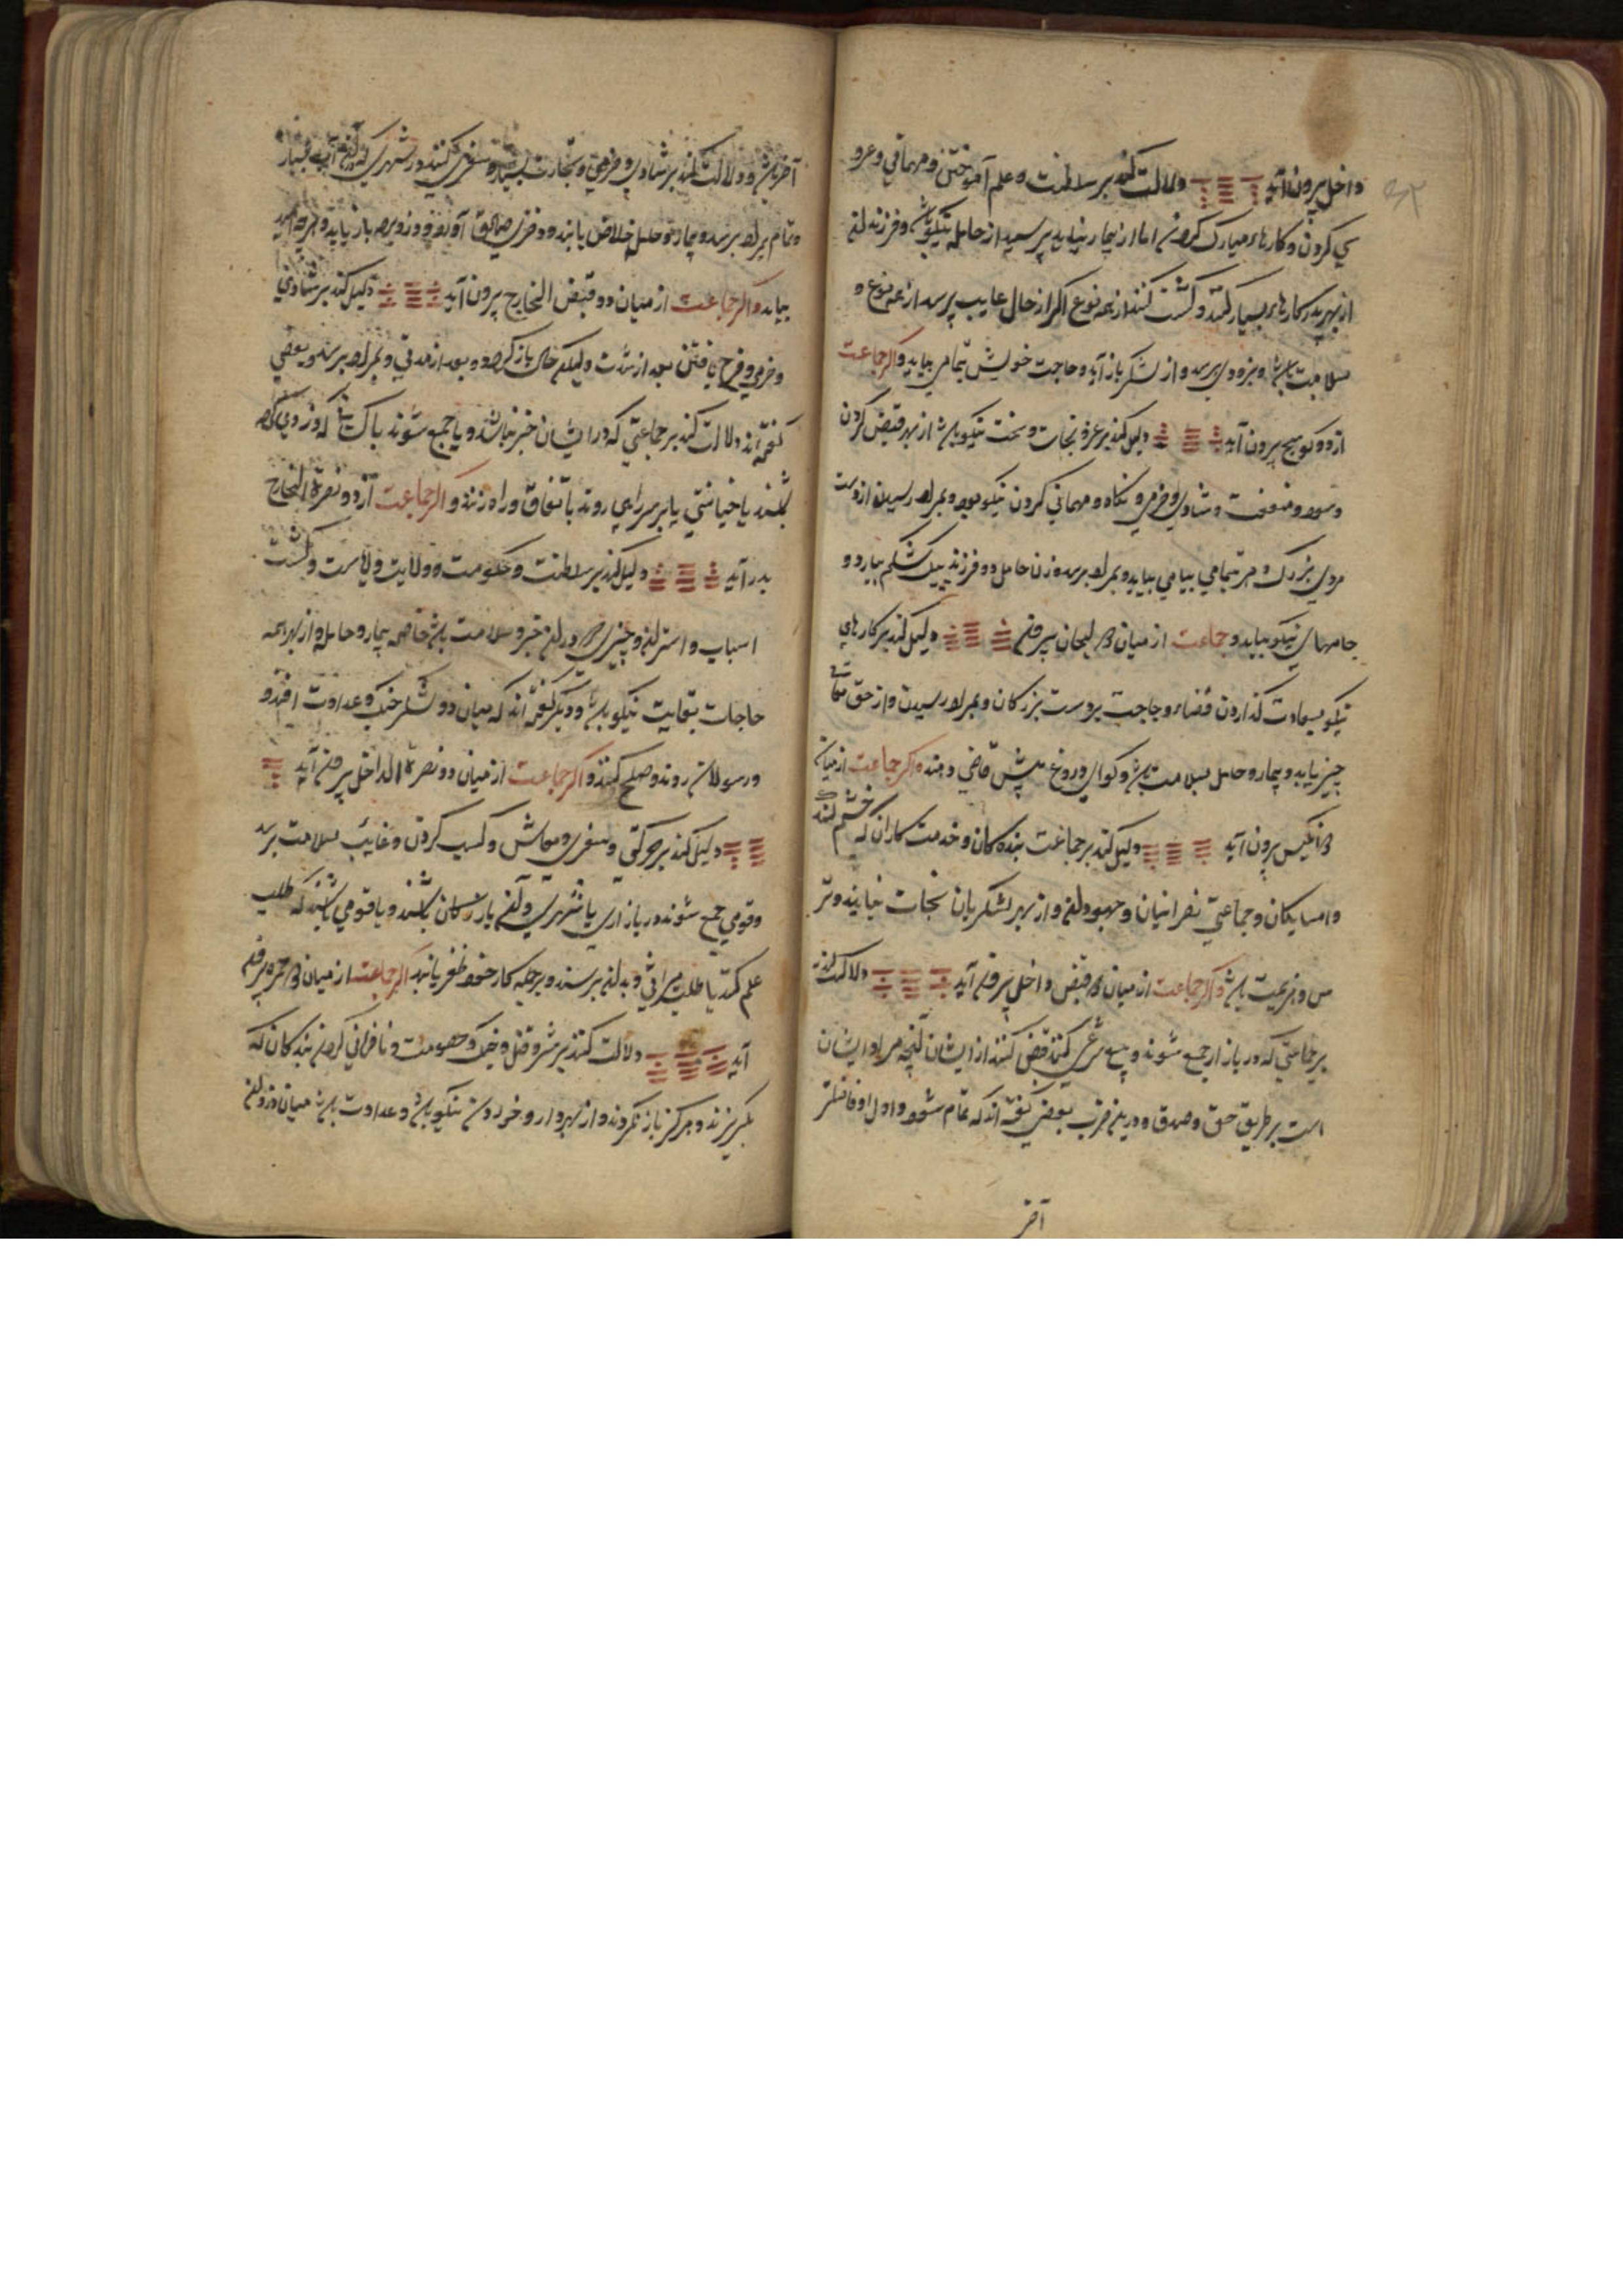 داخل بیرون آید دلالت کند بر سلطنت و علم آموختن و مهمانی و عرو
سی کردن و کارهاء مبارک کردن اما از بیمار نپاید پرسید از حامله نیکو باشد و فرزند
از بهر پدر کارهاء بسیار کند و کشت کند از همه نوع اکر از حال غایب پرسد از همه نوع و
سلامت باشد و بزودی برسد و از لشکر باز آید و حاجت خویش بتمامی بیابد و اکر جماعت
از دو کوسج بیرون آید دلیل کند بر عز و نجات و بخت نیکو باشد از بهر قبض کردن
و سود و منفعت و شادی و خرمی و نکاه و مهمانی کردن نیکو بود و بمراد رسیدن از دست
مردی بزرک و هر بتمامی بیابد و بمراد برسد و زن حامل دو فرزند بیک شکم بیارد و
جامهای نیکو بیابد و جماعت از میان دو لحیان بیرون دلیل کند بر کارهای
نیکو بسعادت کذاردن قضاء و حاجت بر دست بزرکان و بمراد رسیدن و از حق تعالی
چیز یابد و بیمار و حامل بسلامت باشد و کواهی دروغ پیش قاضی دهند و اکر جماعت از میان
دو انکیس بیرون آید دلیل کند بر جماعت بنده کان و خدمت کاران که خشم کند
و امسایکان و جماعتی نصرانیان و جهودان و از بهر لشکریان نجات نیابند و تر
س و هزیمت باشد و اکر جماعت از میان دو قبض داخل بیرون آید دلالت کند
بر جماعتی که در بازار جمع شوند و بیع شرعی کنند قبض کنند از ایشان آنچه مراد ایشان
است بر طریق حق و صدق و درین ضرب بعضی کفته اند که تمام شود و اول او فاضلتر
آخر
آخر باشد و دلالت کند بر شادی و خرمی و تجارت بسیار و سفری کنند در شهری که آب بسیار
و تمام بمراد برسد و بیمار و حامل خلاص یابند و دزد باز یابد و هر چه امید
بیابد و اکر جماعت از میان دو قبض الخارج بیرون آید دلیل کند بر شادی
و خرمی و فرح یافتن بعد از شدت و لیکن باز کردد و بعد از مدتی و بمراد برسد و بعضی
کفته اند دلالت کند بر جماعتی که در ایشان خیر نباشد و یا جمع شوند با کسانی که دزدی کرده
باشند یا خیانتی یا بر سر راهی روند باتفاق و راه زنند و اکر جماعت از دو نصرة الخارج
بدر آید دلیل کند بر سلطنت و حکومت و ولایت و لامت و کشت
اسباب و استر و چیزی در خیر و سلامت باشد خاصه بیمار و حامله و از بهر همه
حاجات بغایت نیکو باشد و دیکر کفته اند که میان دو لشکر جنک و عداوت افتد و
و رسولان روند و صلح کنند و اکر جماعت از میان دو نصرة الداخل بیرون آید
دلیل کند بر حرکتی و سفری و معاش و کسب کردن و غایب بسلامت برسد
و قومی جمع شوند در بازاری یا شهری و بازرکان باشند و یا قومی باشند که طلب
علم کنند یا طلب میراثی و بدان برسند و بر جمله کار خود ظفر یابند اکر جماعت از میان دو حمره بیرون
آید دلالت کند بر شر و قتل و جنک و خصومت و نافرمانی کردن بندکان که
بکریزند و هرکز باز نکردند و از بهر دارو خوردن نیکو باشد و عداوت باشد میان